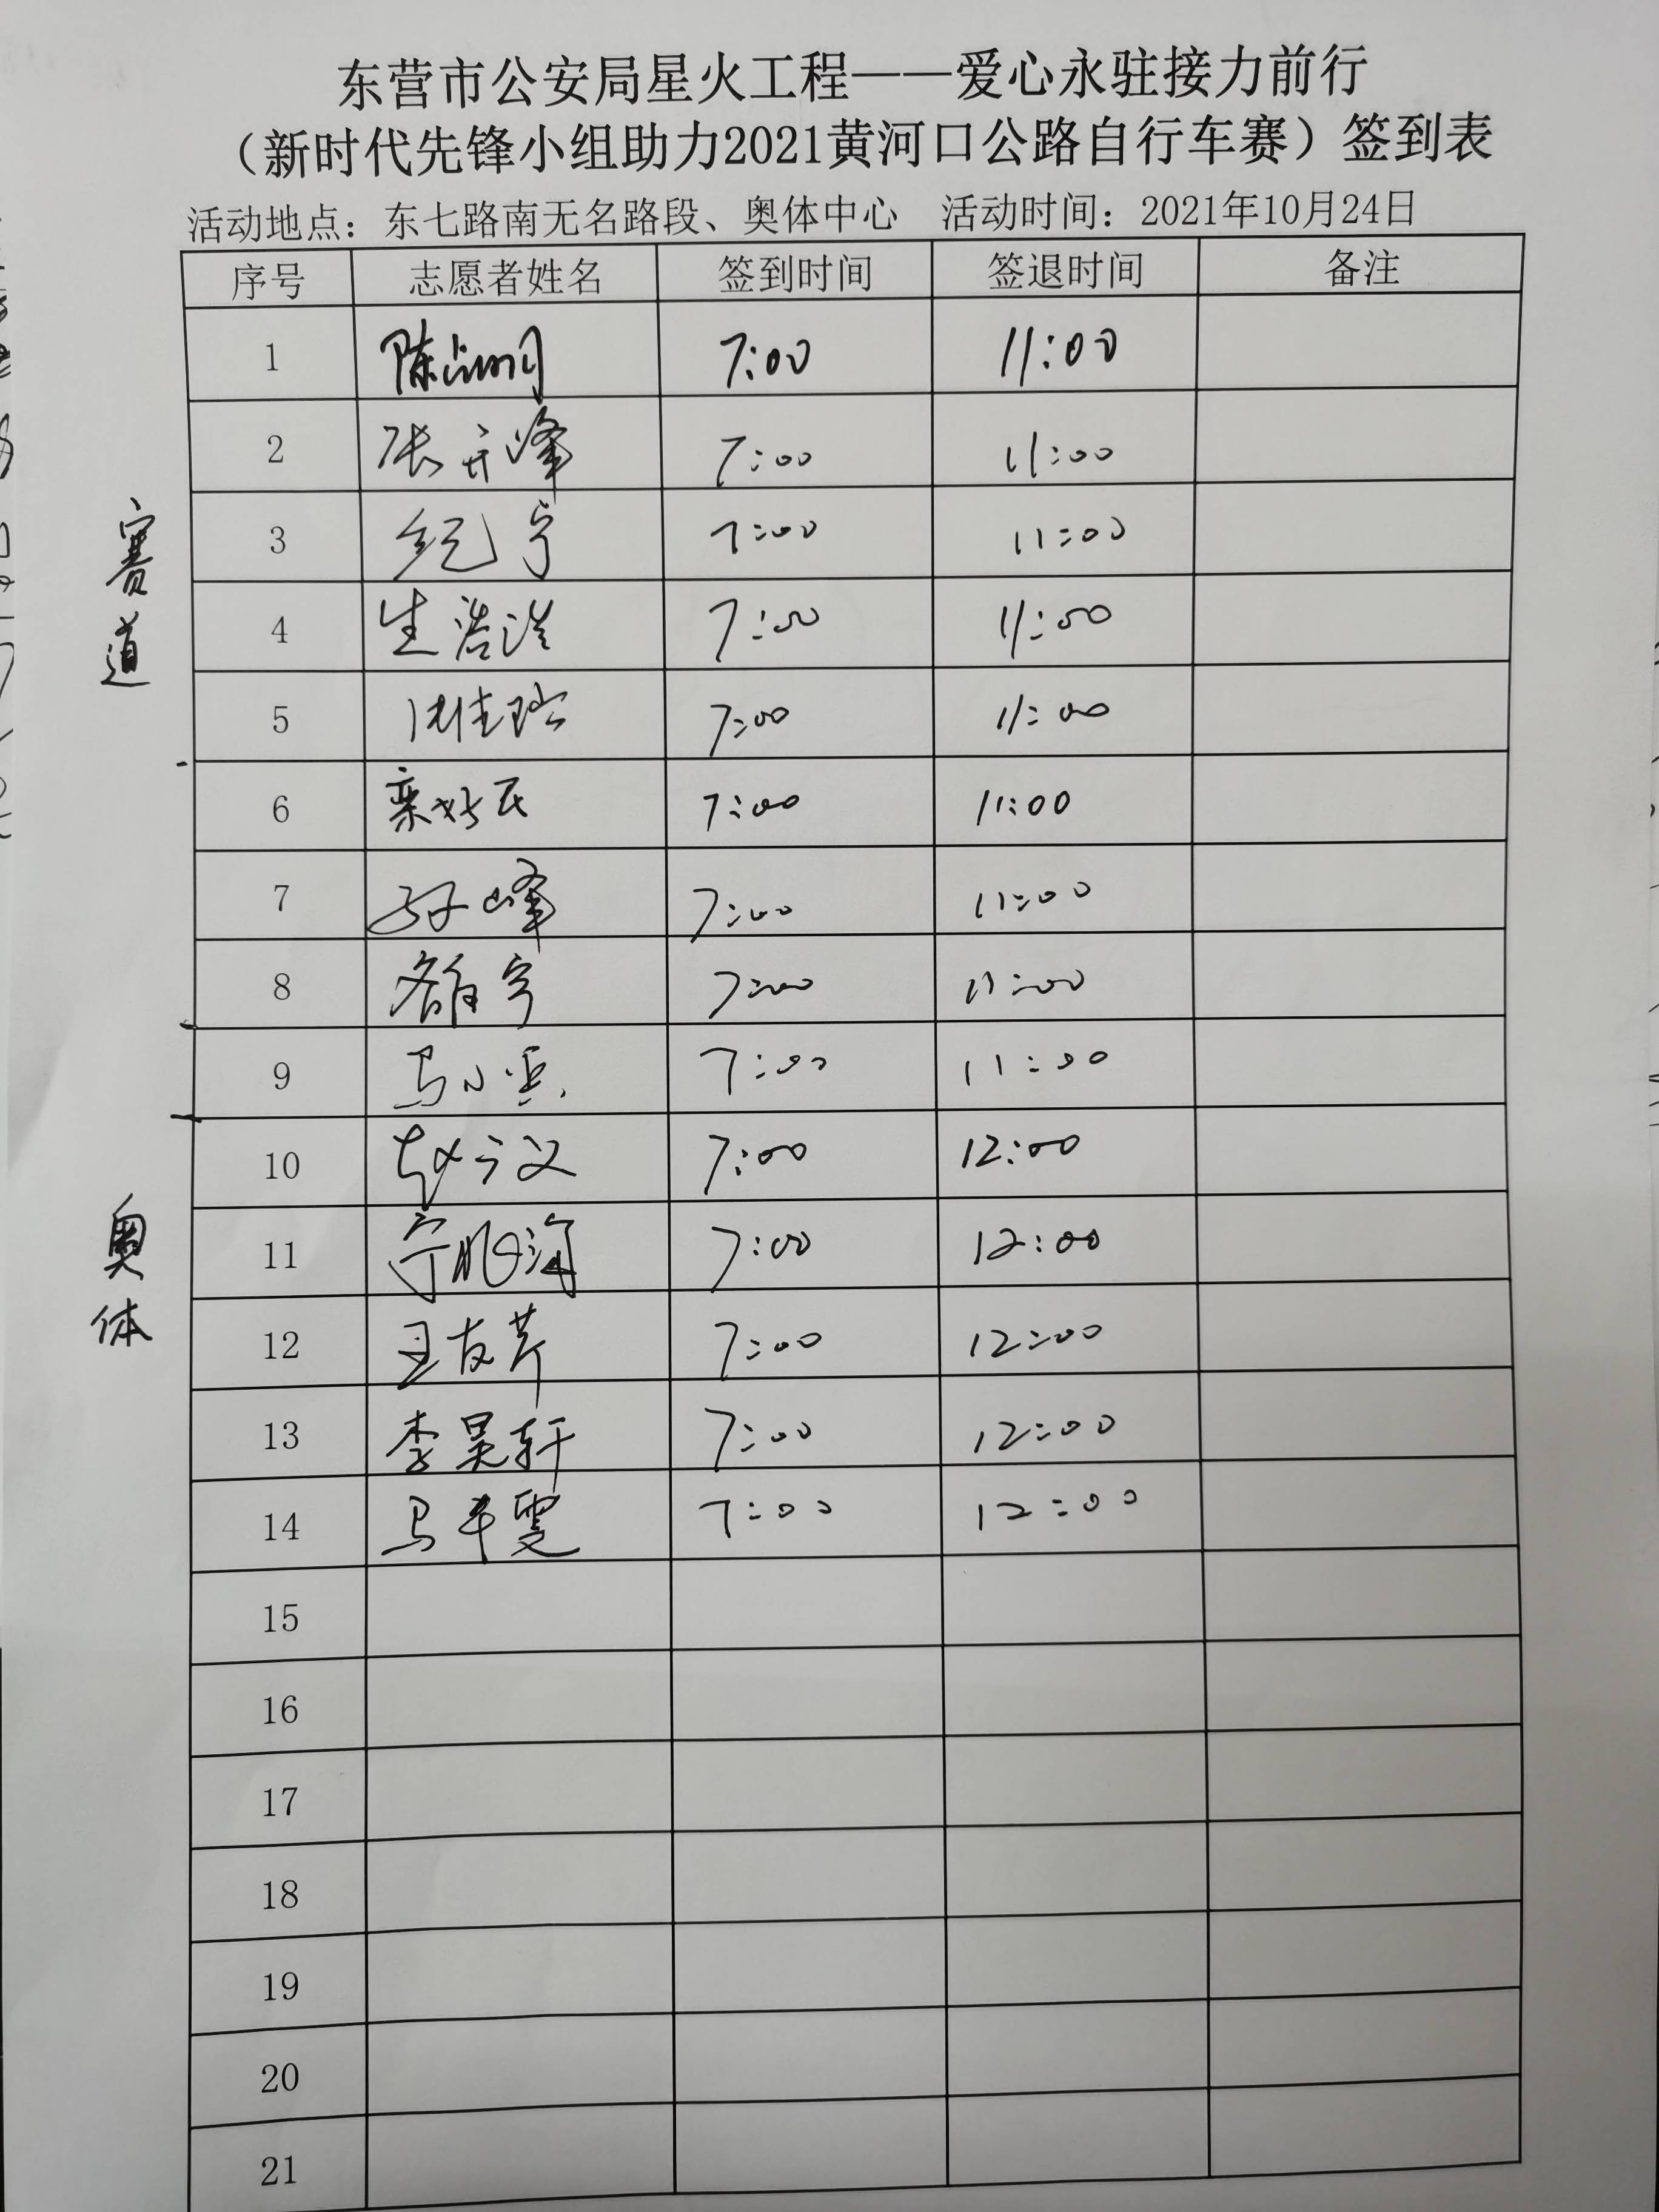 东营市公安局星火工程——爱心永驻接力前行
（新时代先锋小组助力2021黄河口公路自行车赛）签到表
活动地点：东七路南无名路段、奥体中心 活动时间：2021年10月24日
序号 志愿者姓名 签到时间 签退时间 备注
1 陈 7:00 11:00
2 张开峰 7:00 11:00
3 纪宁 7:00 11:00
赛道
4 生浩洋 7:00 11:00
5 7:00 11:00
6 栾 7:00 11:00
7 孙峰 7:00 11:00
8 7:00 11:00
9 马小兵 7:00 11:00
10 赵 7:00 12:00
奥体
11 7:00 12:00
12 王友芹 7:00 12:00
13 李昊轩 7:00 12:00
14 马平雯 7:00 12:00
15
16
17
18
19
20
21